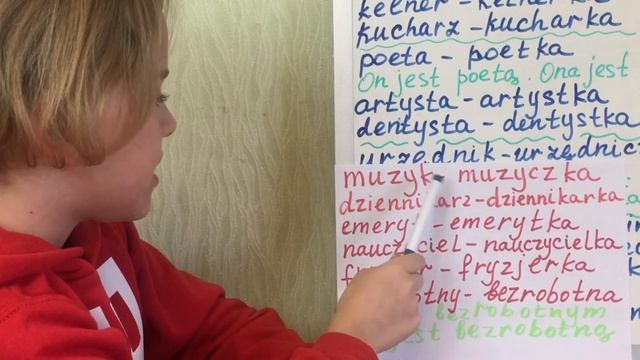 kelner - kelner
kucharz - kucharka
poeta - poetka
On jest poetą. Ona jest
artysta - artystka
dentysta - dentystka
urzędnik - urzędnicz
muzyk - muzyczka
dziennikarz - dziennikarka
emeryt - emerytka
nauczyciel - nauczycielka
fryzjerka
bezrobotna
bezrobotnym
bezrobotną